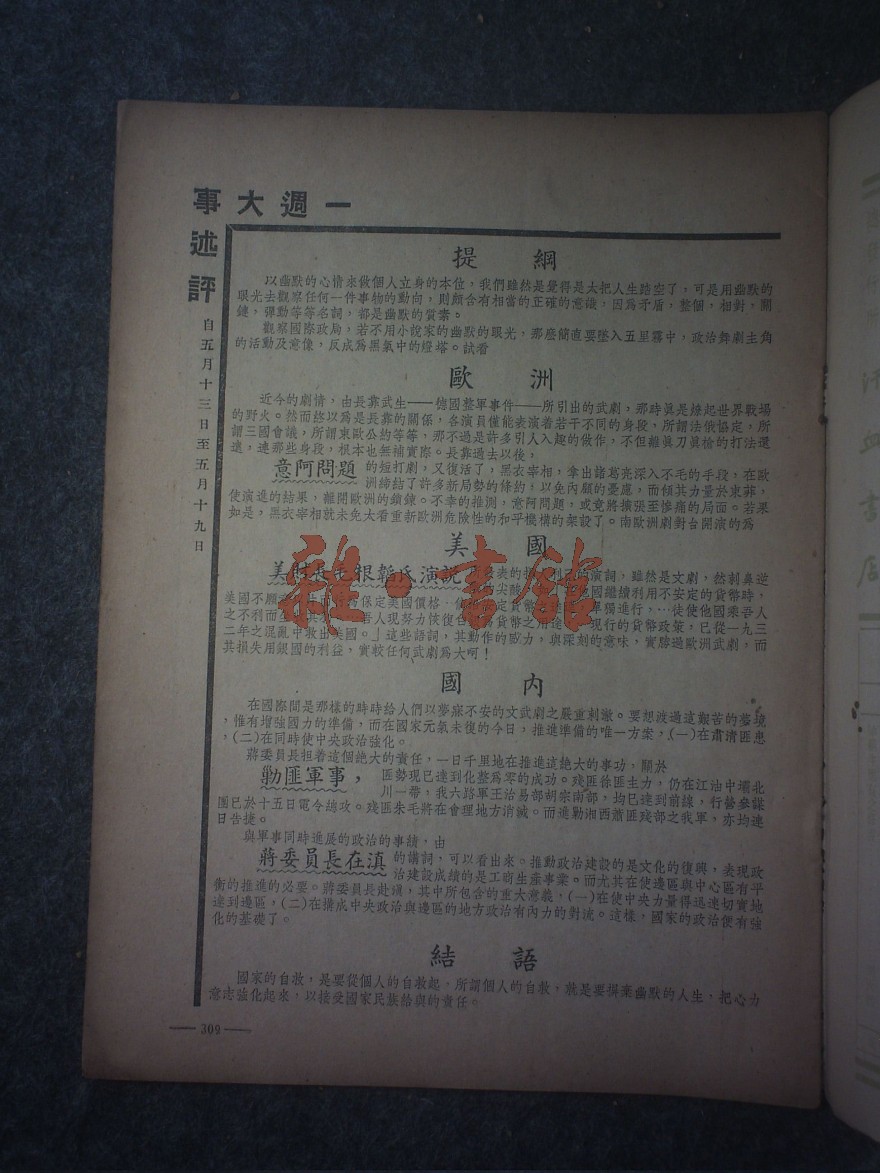 一週大事述評
自五月十三日至五月十九日
提綱
以幽默的心情來做個人立身的本位，我們雖然是覺得是太把人生踏空了，可是用幽默的
眼光去觀察任何一件事物的動向，則頗含有相當的正確的意識，因為矛盾，整個，相對，關
鍵，彈動等等名詞，都是幽默的質素。
觀察國際政局，若不用小說家的幽默的眼光，那麼簡直要墜入五里霧中，政治舞劇主角
的活動及意像，反成為黑氣中的燈塔。試看
歐洲
近今的劇情，由長靠武生——德國整軍事件——所引出的武劇，那時眞是燎起世界戰場
的野火。然而終以為是長靠的關係，各演員僅能表演着若干不同的身段，所謂法俄協定，所
謂三國會議，所謂東歐公約等等，那不過是許多引人入趣的做作，不但離眞刀眞槍的打法還
遠，連那些身段，根本也無補實際。長靠過去以後，
意阿問題的短打劇，又復活了，黑衣宰相，拿出諸葛亮深入不毛的手段，在歐
洲締結了許多新局勢的條約，以免內顧的憂慮，而傾其力量於東菲，
使演進的結果，離開歐洲的鎖鍊。不幸的推測，意阿問題，或竟將擴張至慘痛的局面。若果
如是，黑衣宰相就未免太看重新歐洲危險性的和平機構的架設了。南歐洲劇對台開演的為
美國
美財長毛根韜氏演說
的演詞，雖然是文劇，然刺鼻逆
國繼續利用不安定的貨幣時，
美國不願
為保定美國價格
單獨進行，…徒使他國乘吾人
之不利而
吾人現努力恢復
貨幣之用途
現行的貨幣政策，已從一九三
二年之混亂中救出美國。」這些語詞，其動作的致力，與深刻的意味，實勝過歐洲武劇，而
其損失用銀國的利益，實較任何武劇為大呵！
國內
在國際間是那樣的時時給人們以夢寐不安的文武劇之嚴重刺激。要想渡過這艱苦的夢境
，惟有增強國力的準備，而在國家元氣未復的今日，推進準備的唯一方案，(一)在肅清匪患
，(二)在同時使中央政治強化。
蔣委員長担着這個絕大的責任，一日千里地在推進這絕大的事功，關於
勦匪軍事，匪勢現已達到化整為零的成功。殘匪徐匪主力，仍在江油中壩北
川一帶，我六路軍王治易部胡宗南部，均已達到前線，行營參謀
團已於十五日電令總攻。殘匪朱毛將在會理地方消滅。而進勦湘西蕭匪殘部之我軍，亦均連
日告捷。
與軍事同時進展的政治的事績，由
蔣委員長在滇的講詞，可以看出來。推動政治建設的是文化的復興，表現政
治建設成績的是工商生產事業。而尤其在使邊區與中心區有平
衡的推進的必要。蔣委員長赴滇，其中所包含的重大意義，(一)在使中央力量得迅速切實地
達到邊區，(二)在搆成中央政治與邊區的地方政治有內力的對流。這樣，國家的政治便有強
化的基礎了。
結語
國家的自救，是要從個人的自救起，所謂個人的自救，就是要摒棄幽默的人生，把心力
意志強化起來，以接受國家民族給與的責任。
— 309 —
雜·書館